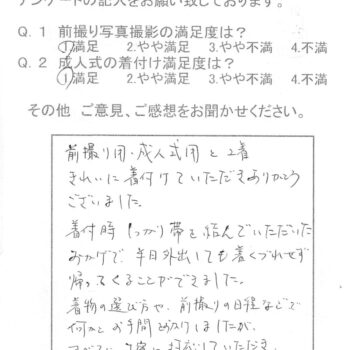 アンケートの記入をお願い致しております。
Q. 1 前撮り写真撮影の満足度は？
1.満足 2.やや満足 3.やや不満 4.不満
Q. 2 成人式の着付け満足度は？
1.満足 2.やや満足 3.やや不満 4.不満
その他 ご意見、ご感想をお聞かせください。
前撮り用・成人式用と2着
きれいに着付けていただきありがとう
ございました。
着付時しっかり帯を結んでいただいた
おかげで、半日外出しても着くづれせず
帰ってくることができました。
着物の選び方や、前撮りの日程などで
何かとお手間どおりしましたが、
丁寧に対応していただき、